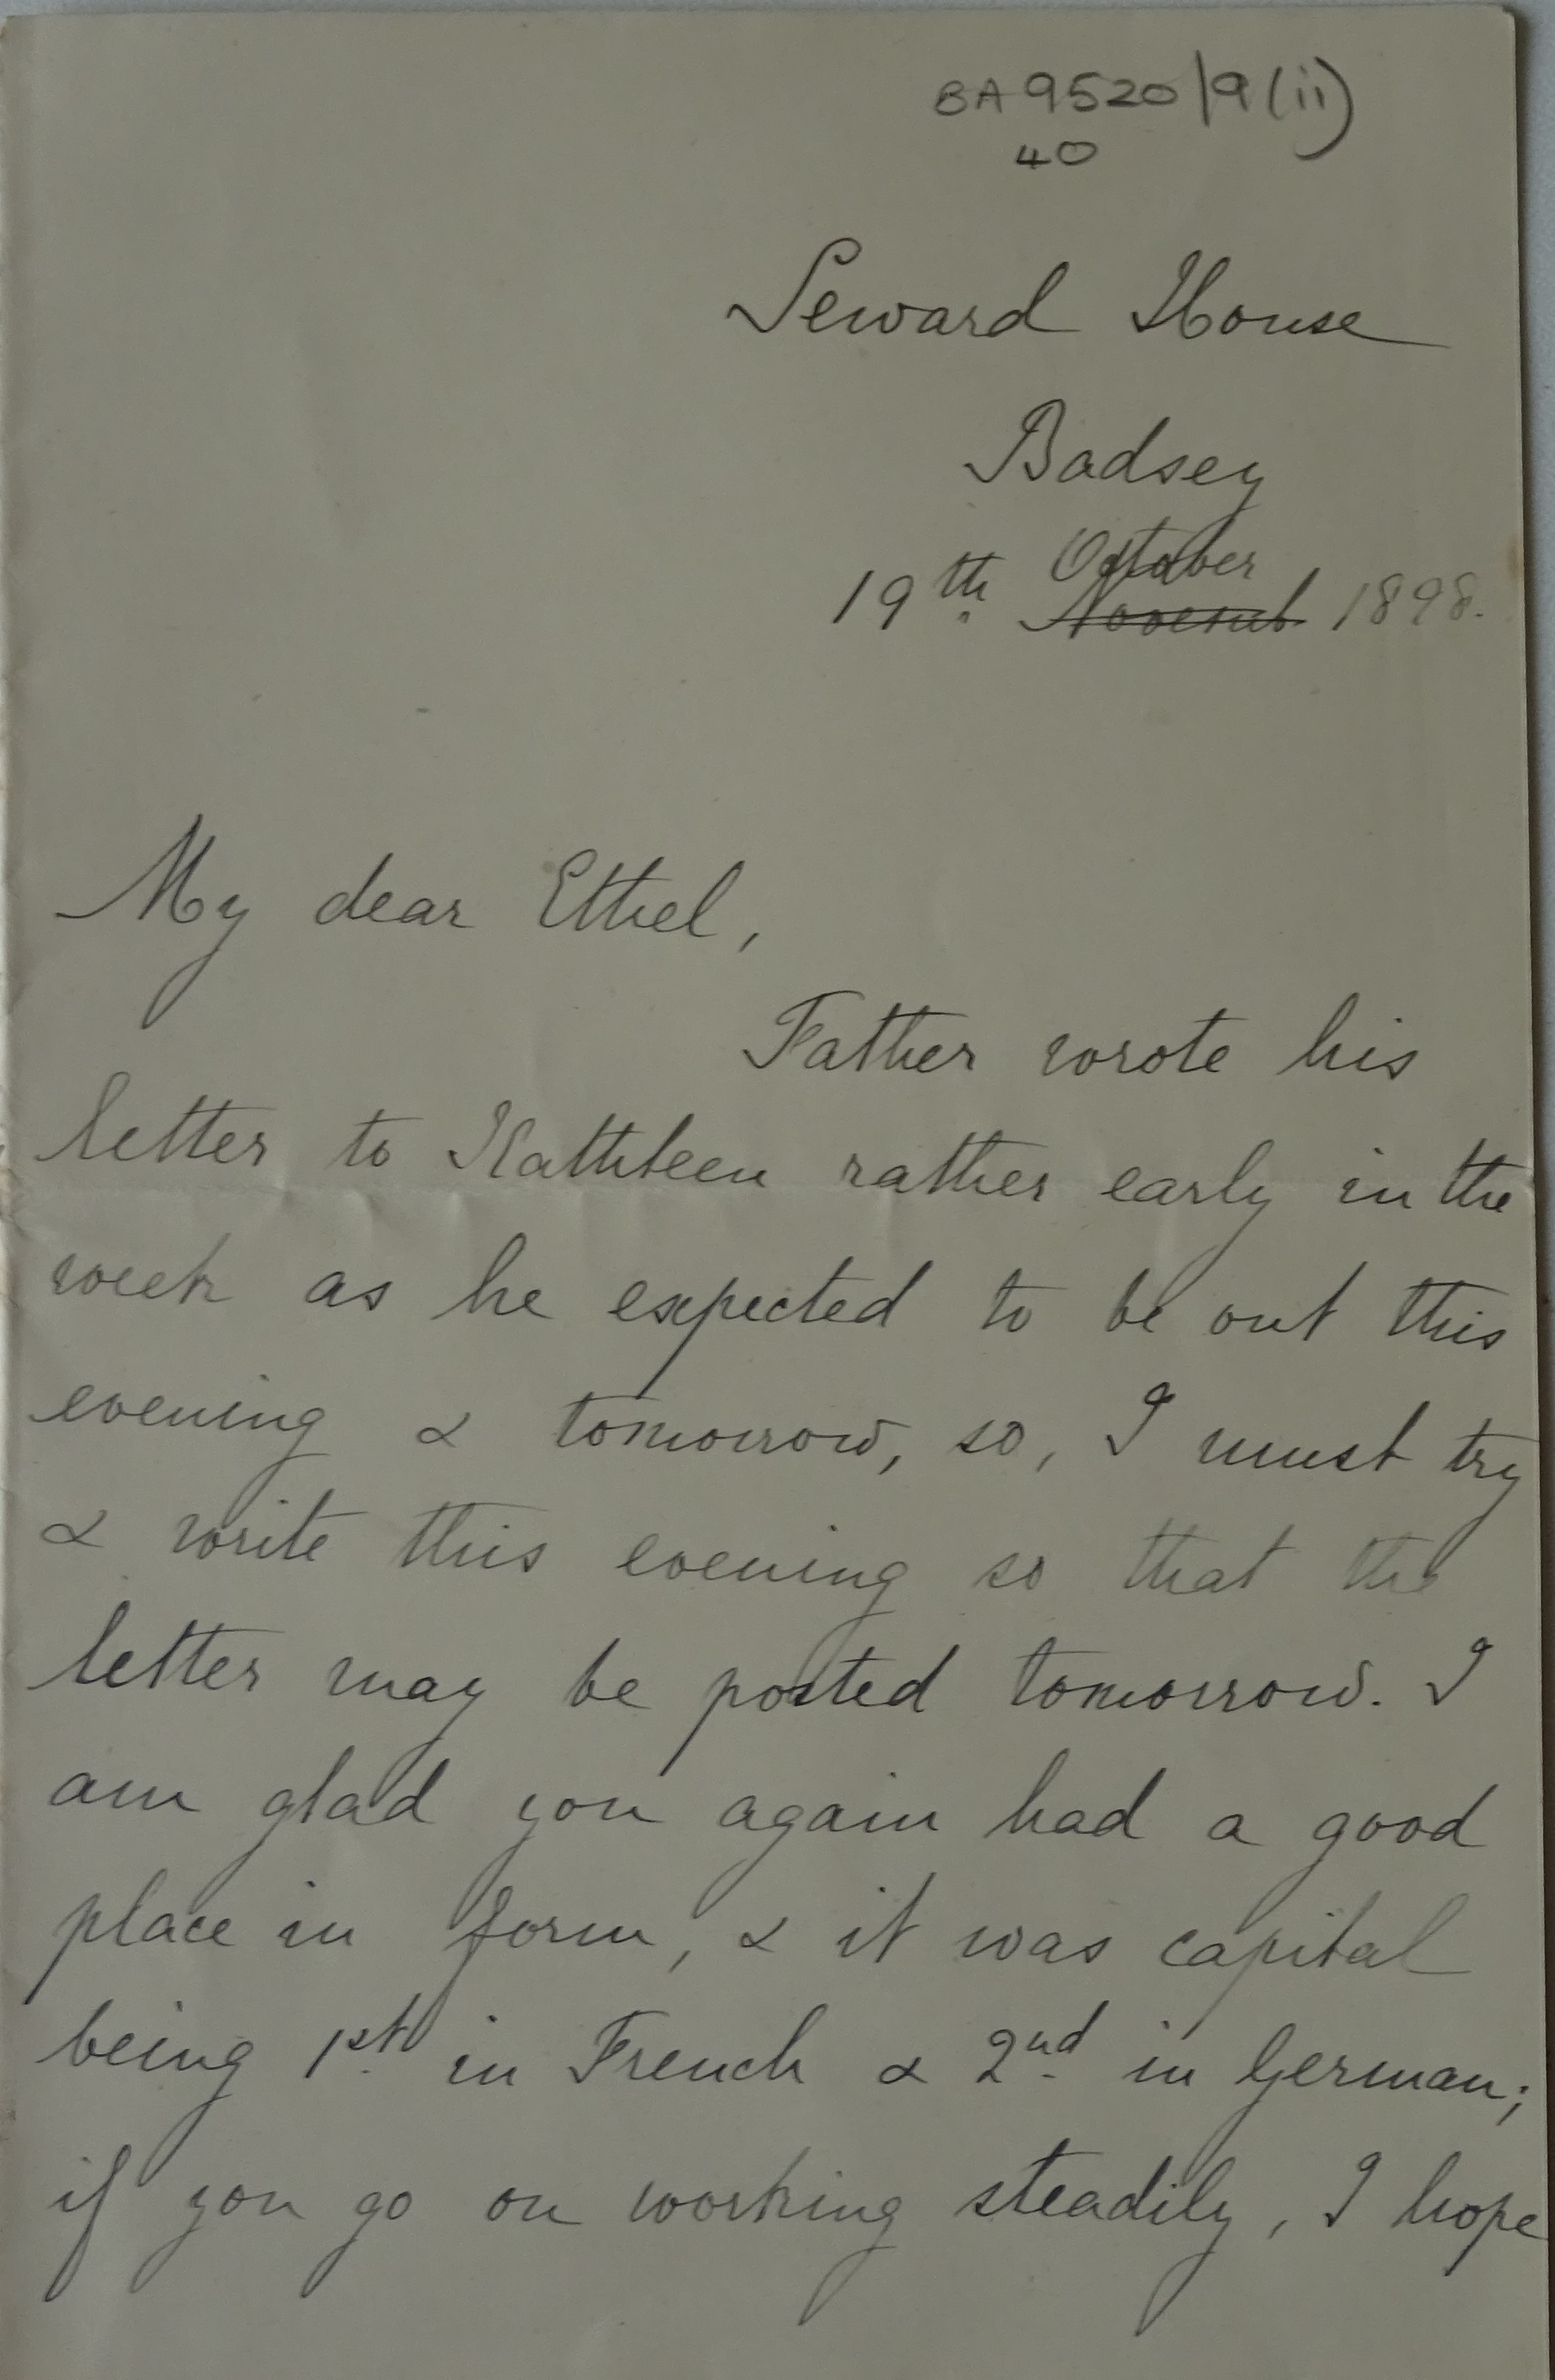 BA 9520/9(ii)
40
Seward House
Badsey
October
19th Novemb. 1898.
My dear Ethel,
Father wrote his
letter to Kathleen rather early in the
week as he expected to be out this
evening & tomorrow, so, I must try
& write this evening so that the
letter may be posted tomorrow. I
am glad you again had a good
place in form, & it was capital
being 1st in French & 2nd in German;
if you go on working steadily, I hope